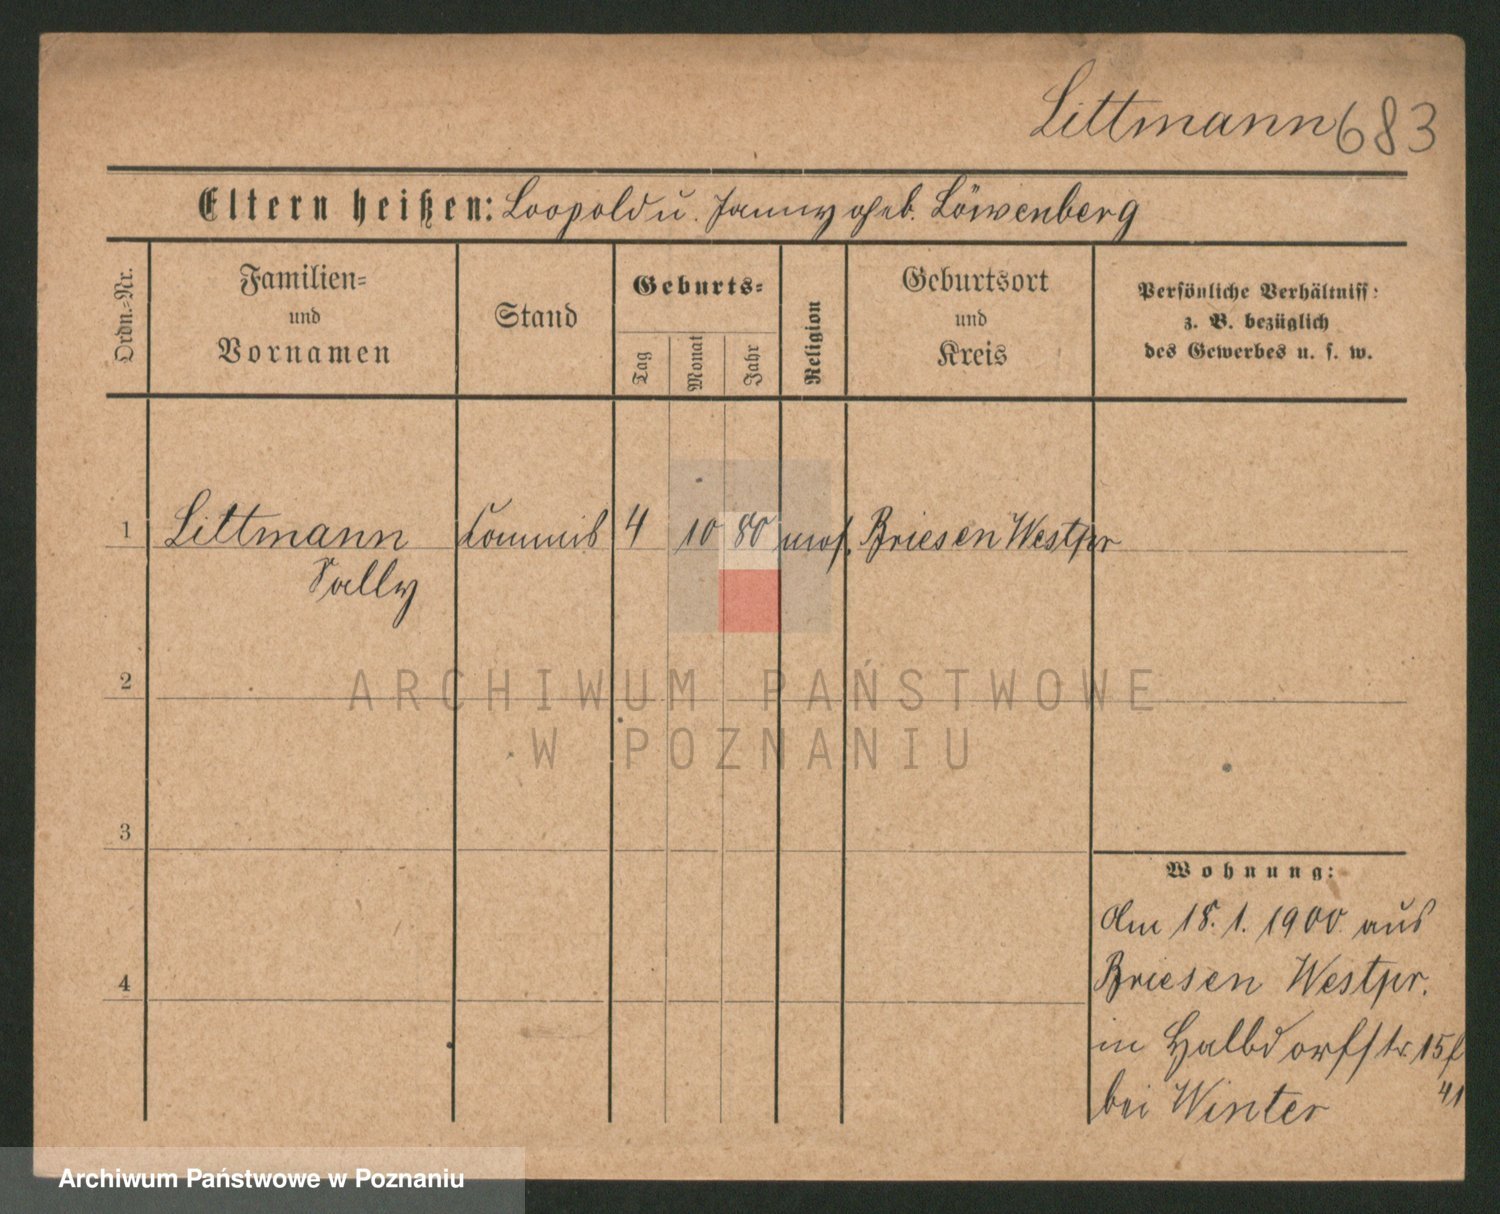 Littmann 683
Eltern heißen: Leopold u. Fanny geb. Löwenberg
Ordn.-Nr.
Familien-
und
Vornamen
Stand
Geburts-
Tag
Monat
Jahr
Religion
Geburtsort
und
Kreis
Persönliche Verhältniss:
z. B. bezüglich
des Gewerbes u. s. w.
1 Littmann Commis 4 10 80 mos. Briesen Westpr
Sally
2
ARCHIWUM PAŃSTWOWE
W POZNANIU
3
Wohnung:
Am 18. 1. 1900 aus
4 Briesen Westpr.
in Halbdorfstr 15
41
bei Winter
Archiwum Państwowe w Poznaniu